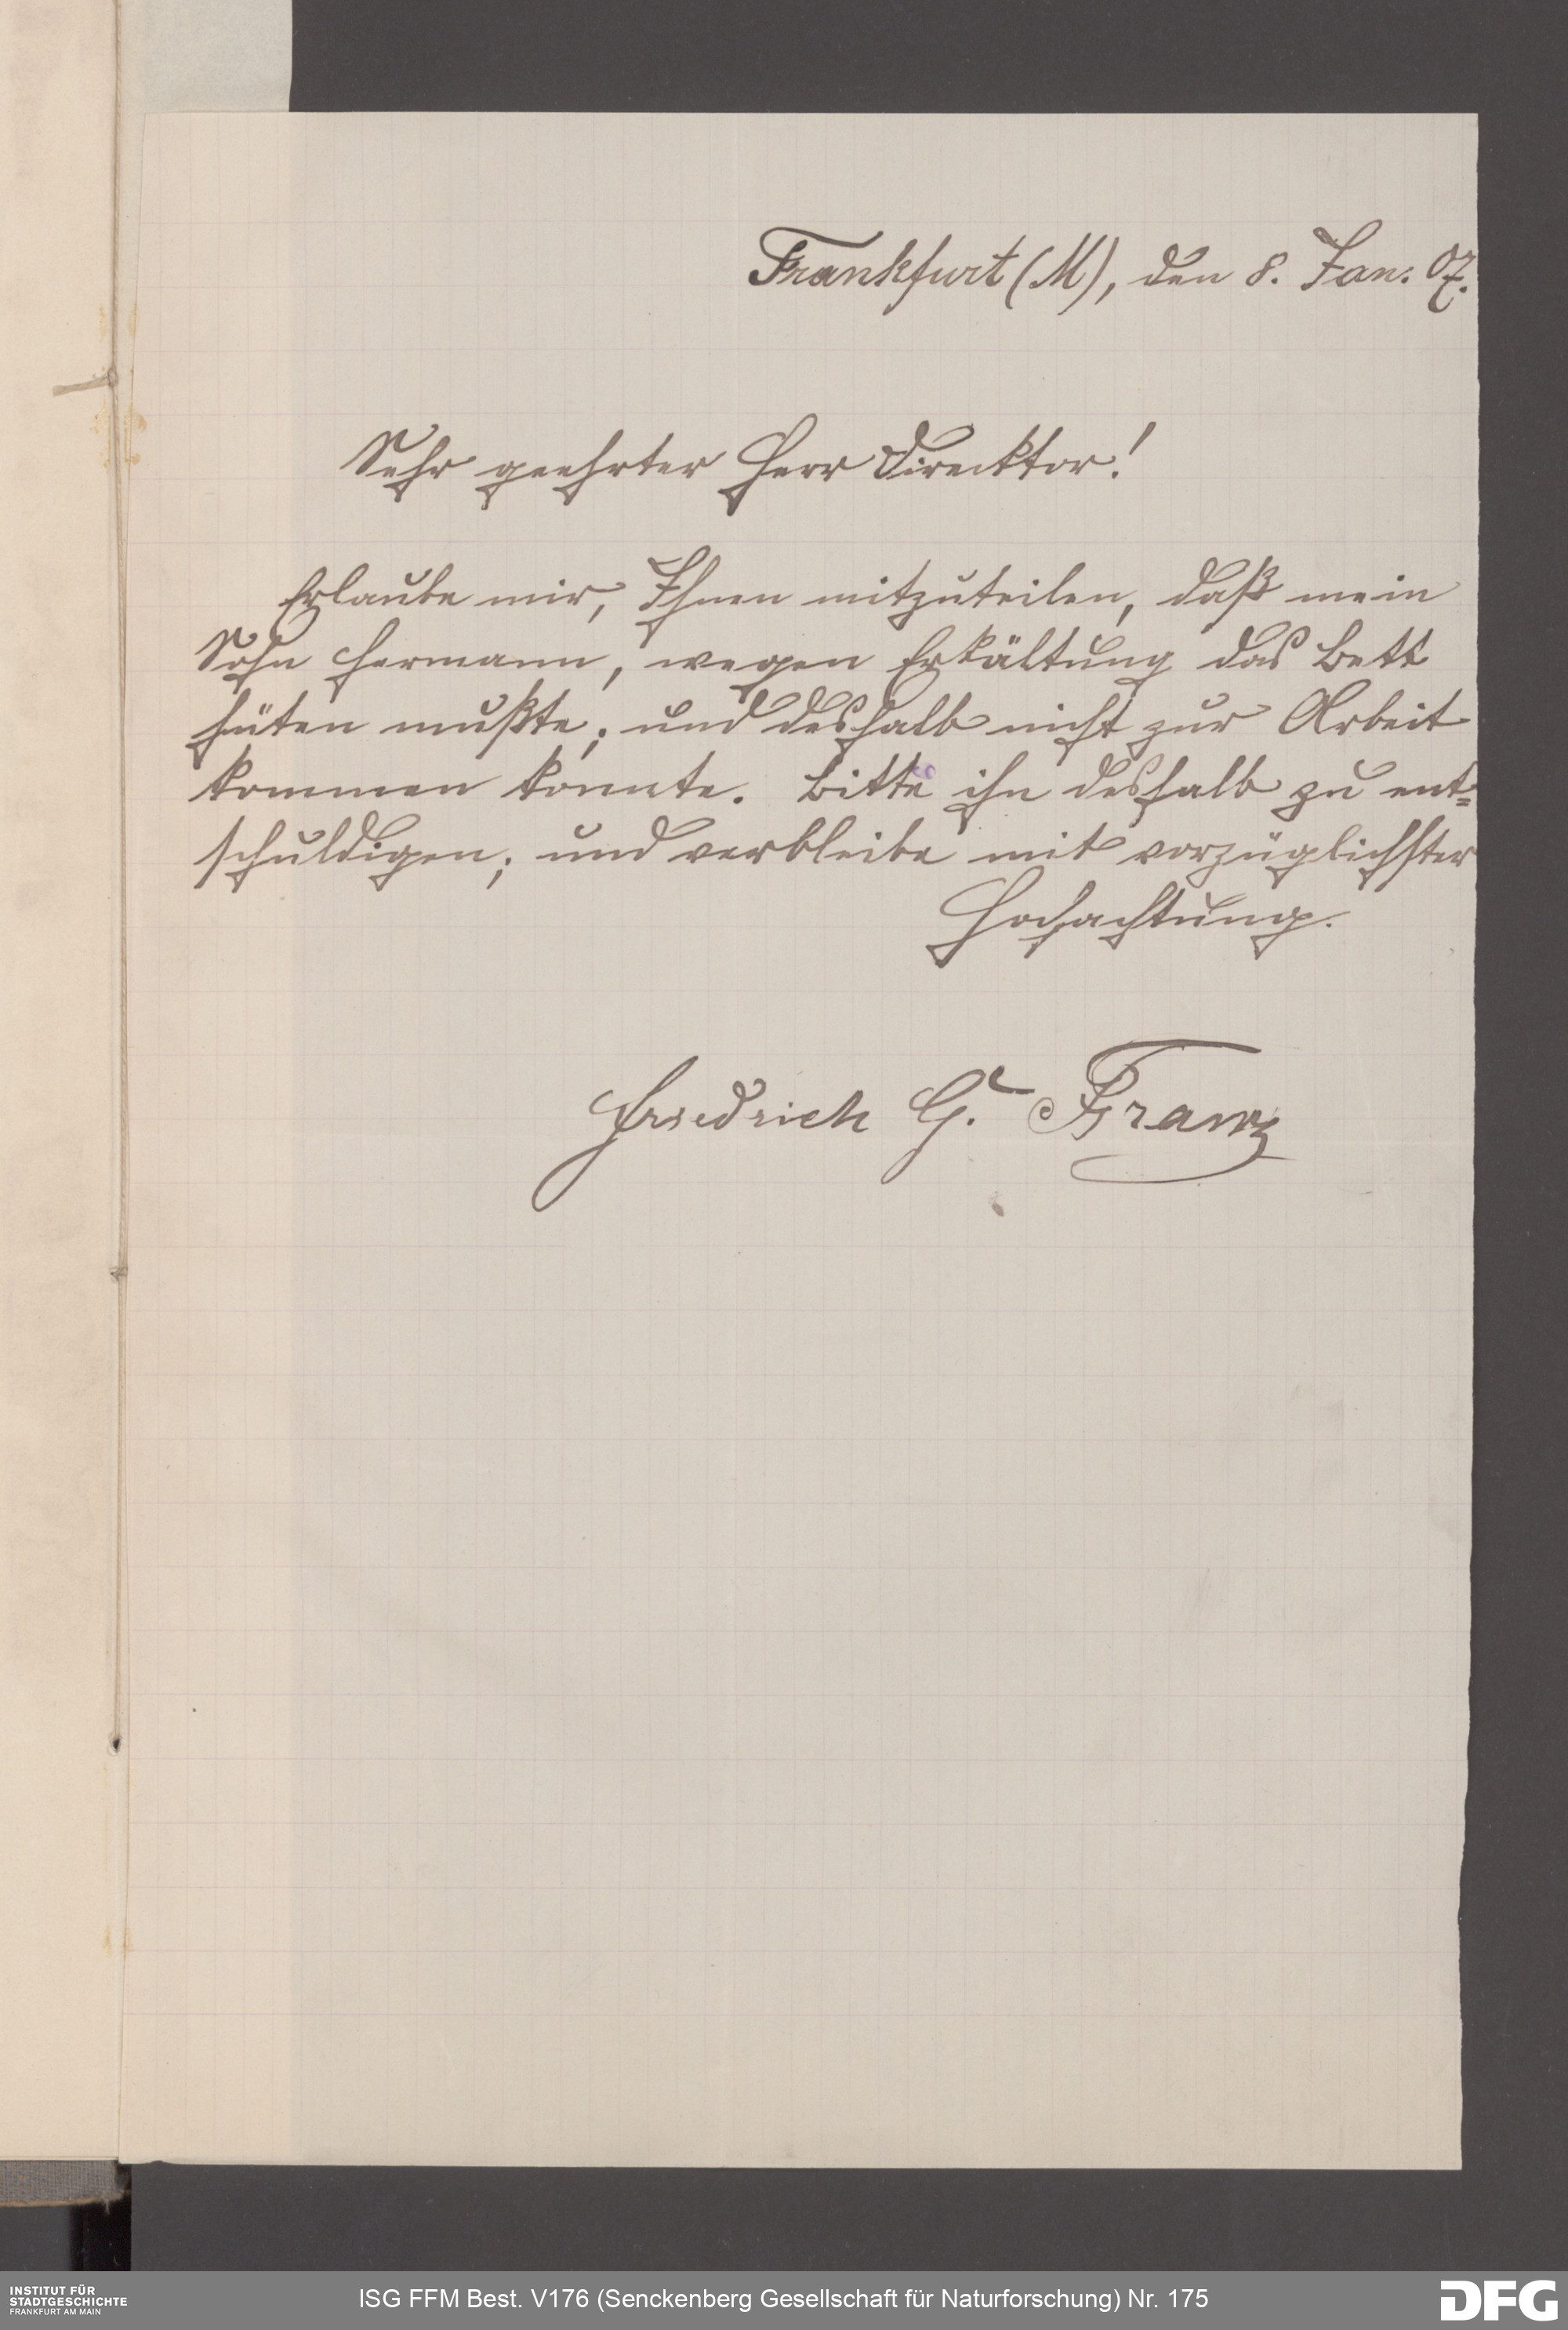 Frankfurt (M), den 8. Jan. 07.
Sehr geehrter Herr Direcktor!
Erlaube mir, Ihnen mitzuteilen, daß mein
Sohn Hermann, wegen Erkältung das Bett
hüten mußte; und deshalb nicht zur Arbeit
kommen konnte. Bitte ihn deshalb zu ent=
schuldigen; und verbleibe mit vorzüglichster
Hochachtung.
Friedrich G. Franz
INSTITUT FÜR
STADTGESCHICHTE
FRANKFURT AM MAIN
ISG FFM Best. V176 (Senckenberg Gesellschaft für Naturforschung) Nr. 175
DFG